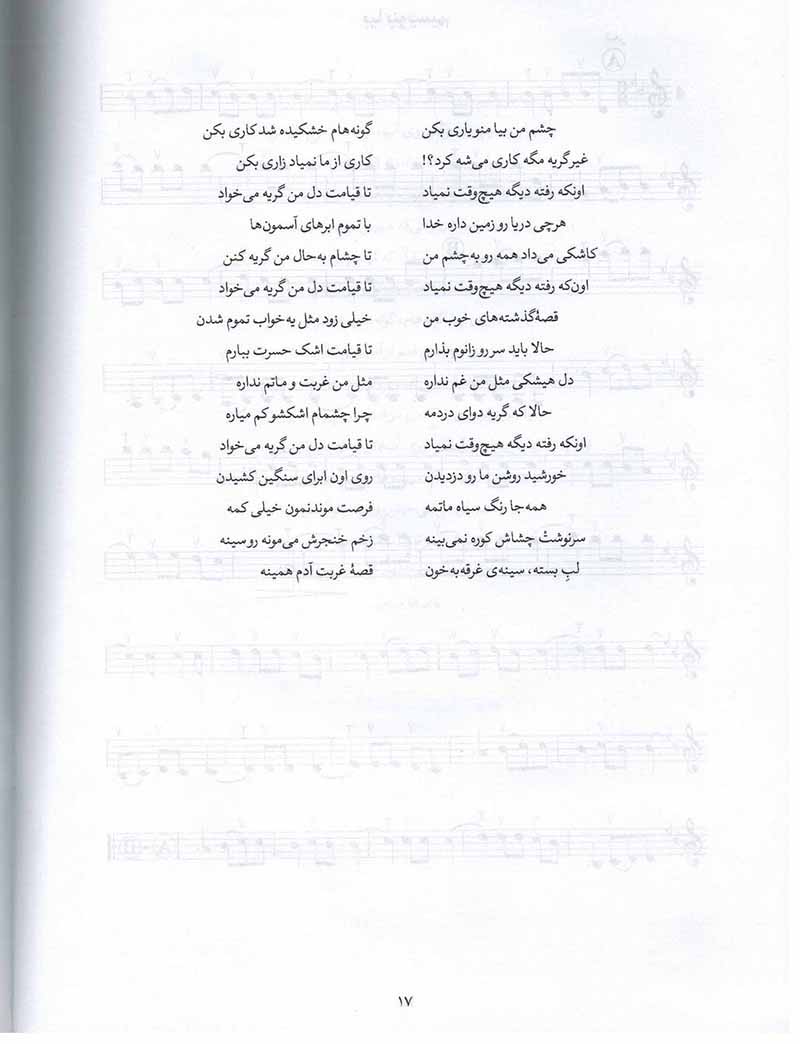 چشم من بیا منو یاری بکن گونه‌هام خشکیده شد کاری بکن
غیر گریه مگه کاری می‌شه کرد؟! کاری از ما نمیاد زاری بکن
اونکه رفته دیگه هیچ‌وقت نمیاد تا قیامت دل من گریه می‌خواد
هرچی دریا رو زمین داره خدا با تموم ابرهای آسمون‌ها
کاشکی می‌داد همه رو به‌چشم من تا چشام به‌حال من گریه کنن
اون‌که رفته دیگه هیچ‌وقت نمیاد تا قیامت دل من گریه می‌خواد
قصهٔ گذشته‌های خوب من خیلی زود مثل یه‌خواب تموم شدن
حالا باید سر رو زانوم بذارم تا قیامت اشک حسرت ببارم
دل هیشکی مثل من غم نداره مثل من غربت و ماتم نداره
حالا که گریه دوای دردمه چرا چشمام اشکشو کم میاره
اونکه رفته دیگه هیچ‌وقت نمیاد تا قیامت دل من گریه می‌خواد
خورشید روشن ما رو دزدیدن روی اون ابرای سنگین کشیدن
همه‌جا رنگ سیاه ماتمه فرصت موندنمون خیلی کمه
سرنوشتْ چشاش کوره نمی‌بینه زخم خنجرش می‌مونه رو سینه
لبِ بسته، سینه‌ی غرقه‌به‌خون قصهٔ غربت آدم همینه
۱۷